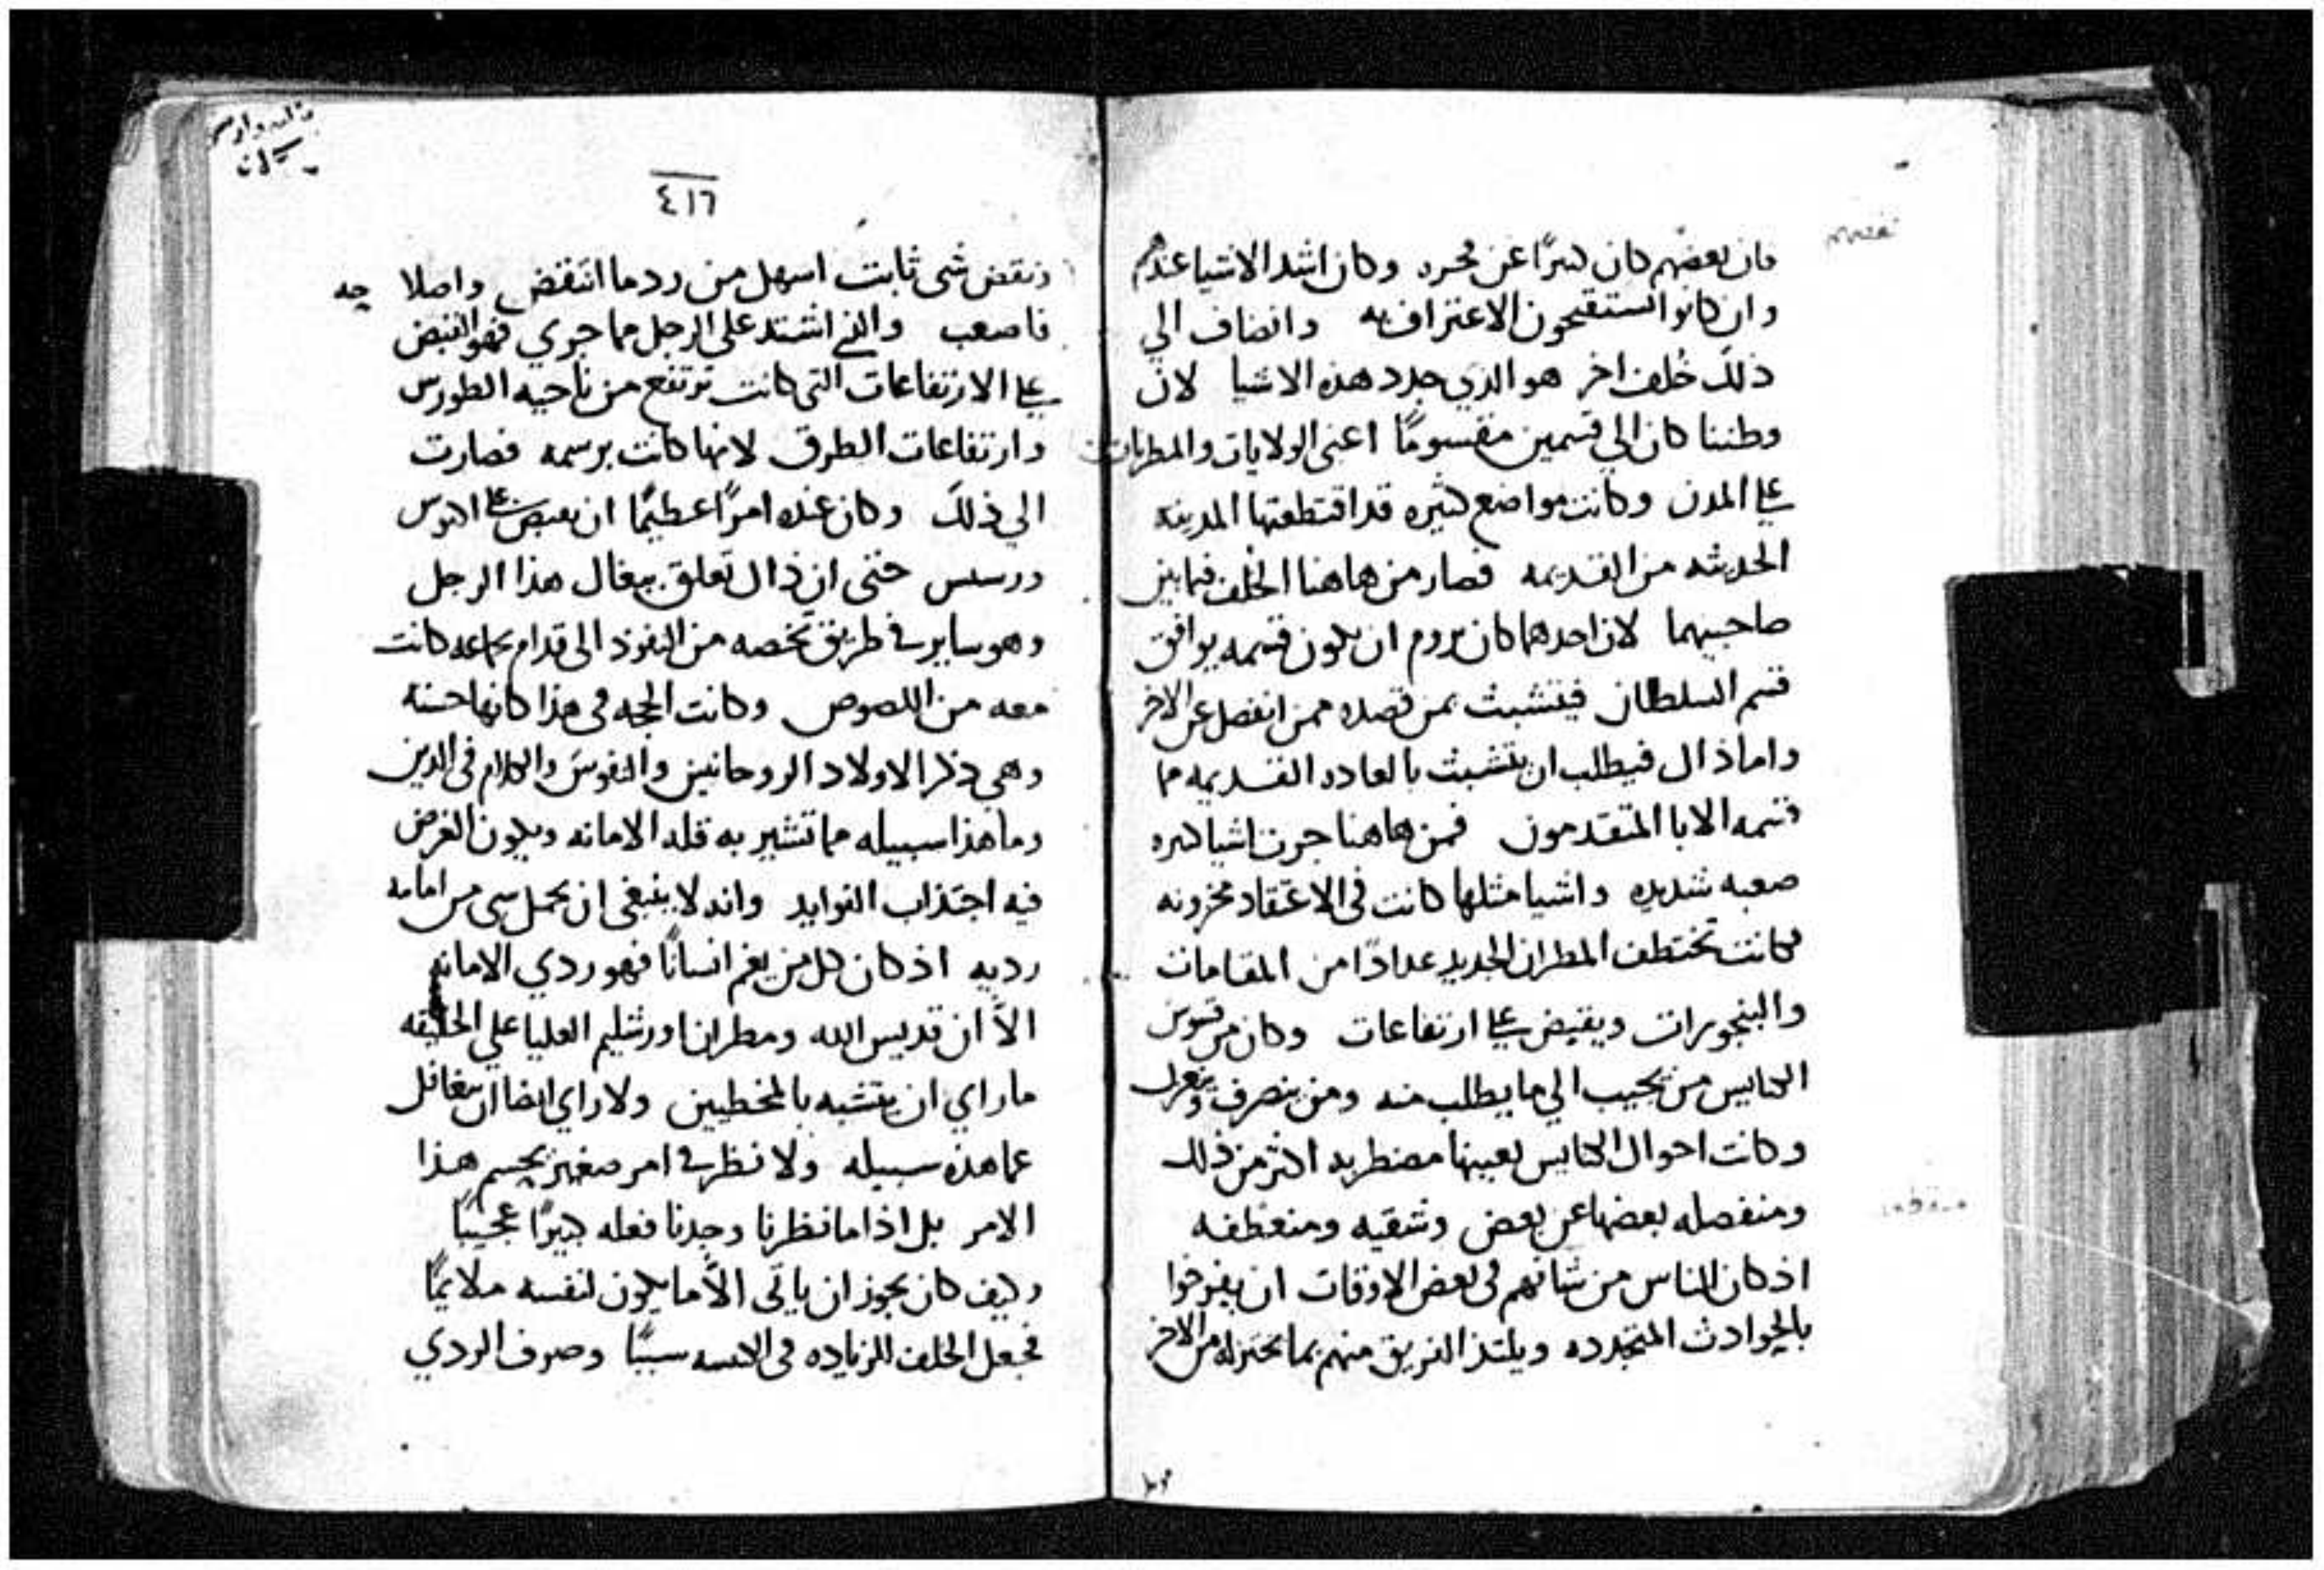 فان بعضهم كان كبرًا عن محرد وكان اشد الاشيا عندهم
وان كانوا يستقبحون الاعتراف به وانضاف الي
ذلك خُلف اخر هو الدي جدد هذه الاشيا لان
وطننا كان الي قسمين مقسومًا اعني الولايات والمطرنات
علي المدن وكانت مواضع كثيره قد اقتطعتها المدينه
الحديثه من القديمه فصار من هاهنا الخلف فيما بين
صاحبيهما لان احدهما كان يروم ان يكون قسمه يوافق
قسم السلطان فيتشبث بمن قصده ممن انفصل عن الاخر
واما ذال فيطلب ان يتشبث بالعاده القديمه مما
قسمه الابا المتقدمون فمن هاهنا جرت اشيا كثيره
صعبه شديده واشيا مثلها كانت في الاعتقاد مخزونه
فكانت تختطف المطران الجديد عدادًا من المقامات
والبنجورات ويقبض علي ارتفاعات وكان من قسوس
الكنايس من يجيب الي ما يطلب منه ومن ينصرف ويعزل
وكانت احوال الكنايس بعينها مضطربه اكثر من ذلك
ومنفصله بعضها عن بعض وشقيه ومنعطفه
اذ كان الناس من شانهم في بعض الاوقات ان يفرحوا
بالحوادث المتجدده ويلتذ الفريق منهم بما يختزله من الاخر
٤١٦
ونقض شي ثابت اسهل من رد ما انتقض واصلاحه
فاصعب والذي اشتد علي الرجل مما جري فهو القبض
علي الارتفاعات التي كانت ترتفع من ناحيه الطورس
وارتفاعات الطرق لانها كانت برسمه فصارت
الي ذلك وكان عنده امرًا عظيمًا ان يقبض علي
حتي ان ذال تعلق ببغال هذا الرجل
وهو ساير في طريق تخصه من النفوذ الي قدام بجماعه كانت
معه من اللصوص وكانت الحجه في هذا كانها حسنه
وهي ذكر الاولاد الروحانيين والنفوس والكلام في الدين
وما هذا سبيله مما تشير به قله الامانه ويكون الغرض
فيه اجتذاب الفوايد وانه لا ينبغي ان يحمل شي من امامه
رديه اذ كان كل من يغم انسانًا فهو ردي الامانه
الاّ ان قديس الله ومطران اورشليم العليا علي الحقيقه
ما راي ان يتشبه بالمخطيين ولا راي ايضا ان يتغافل
عما هذه سبيله ولا نظر في امر صغير يحسم هذا
الامر بل اذا ما نظرنا وجدنا فعله كبيرًا عجيبًا
وكيف كان يجوز ان ياتي الاّ ما يكون لنفسه ملايمًا
فجعل الخلف للزياده في الانفسه سببًا وصرف الردي